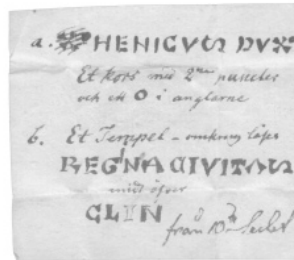 a. HENICVS DVX
Et kors med 2ne puncter
och ett O i anglarne
b. Et Tempel - omkring låses
REGNA CIVITAS
midt öfver
GLIN
från 10de Seclet